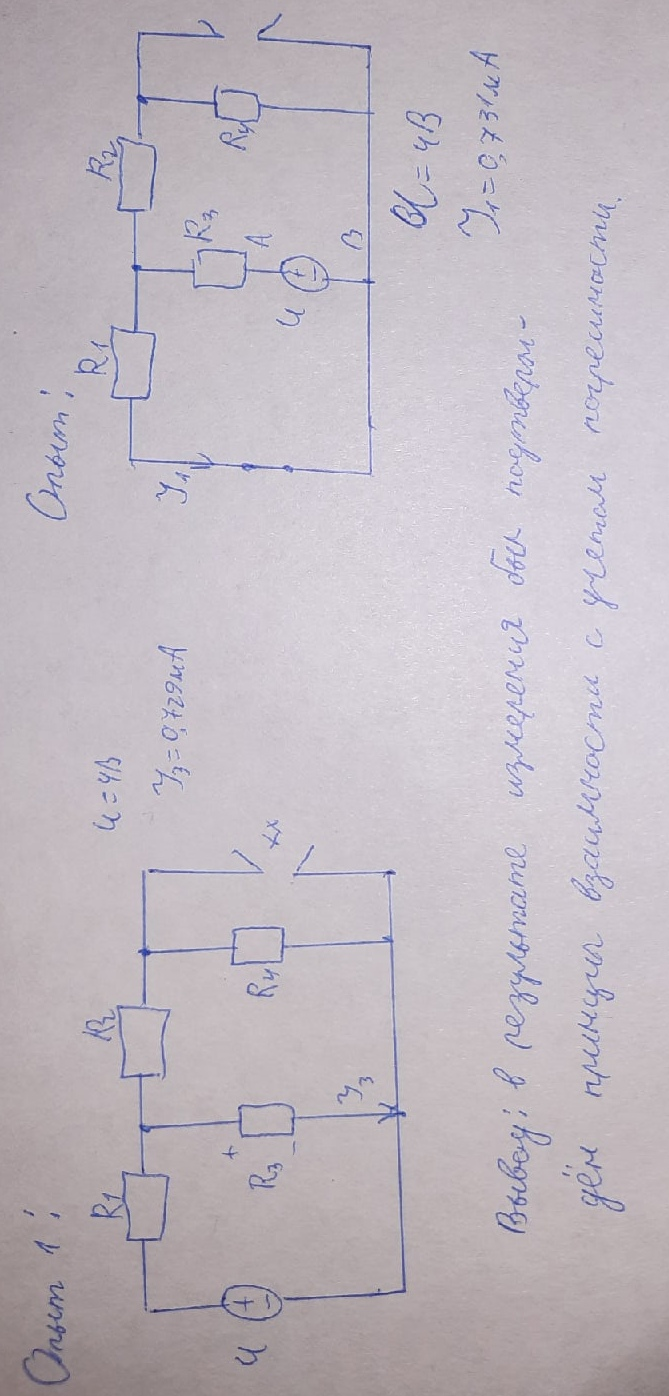 Опыт 1:
U
+
−
R1
R2
R3
+
−
R4
I₃
хх
U = 4В
I₃ = 0,729мА
Опыт:
I₁
R1
R2
R3
A
U
+
−
В
R4
U = 4В
I₁ = 0,731мА
Вывод: в результате измерения был подтверж-
дён принцип взаимности с учетом погрешности.